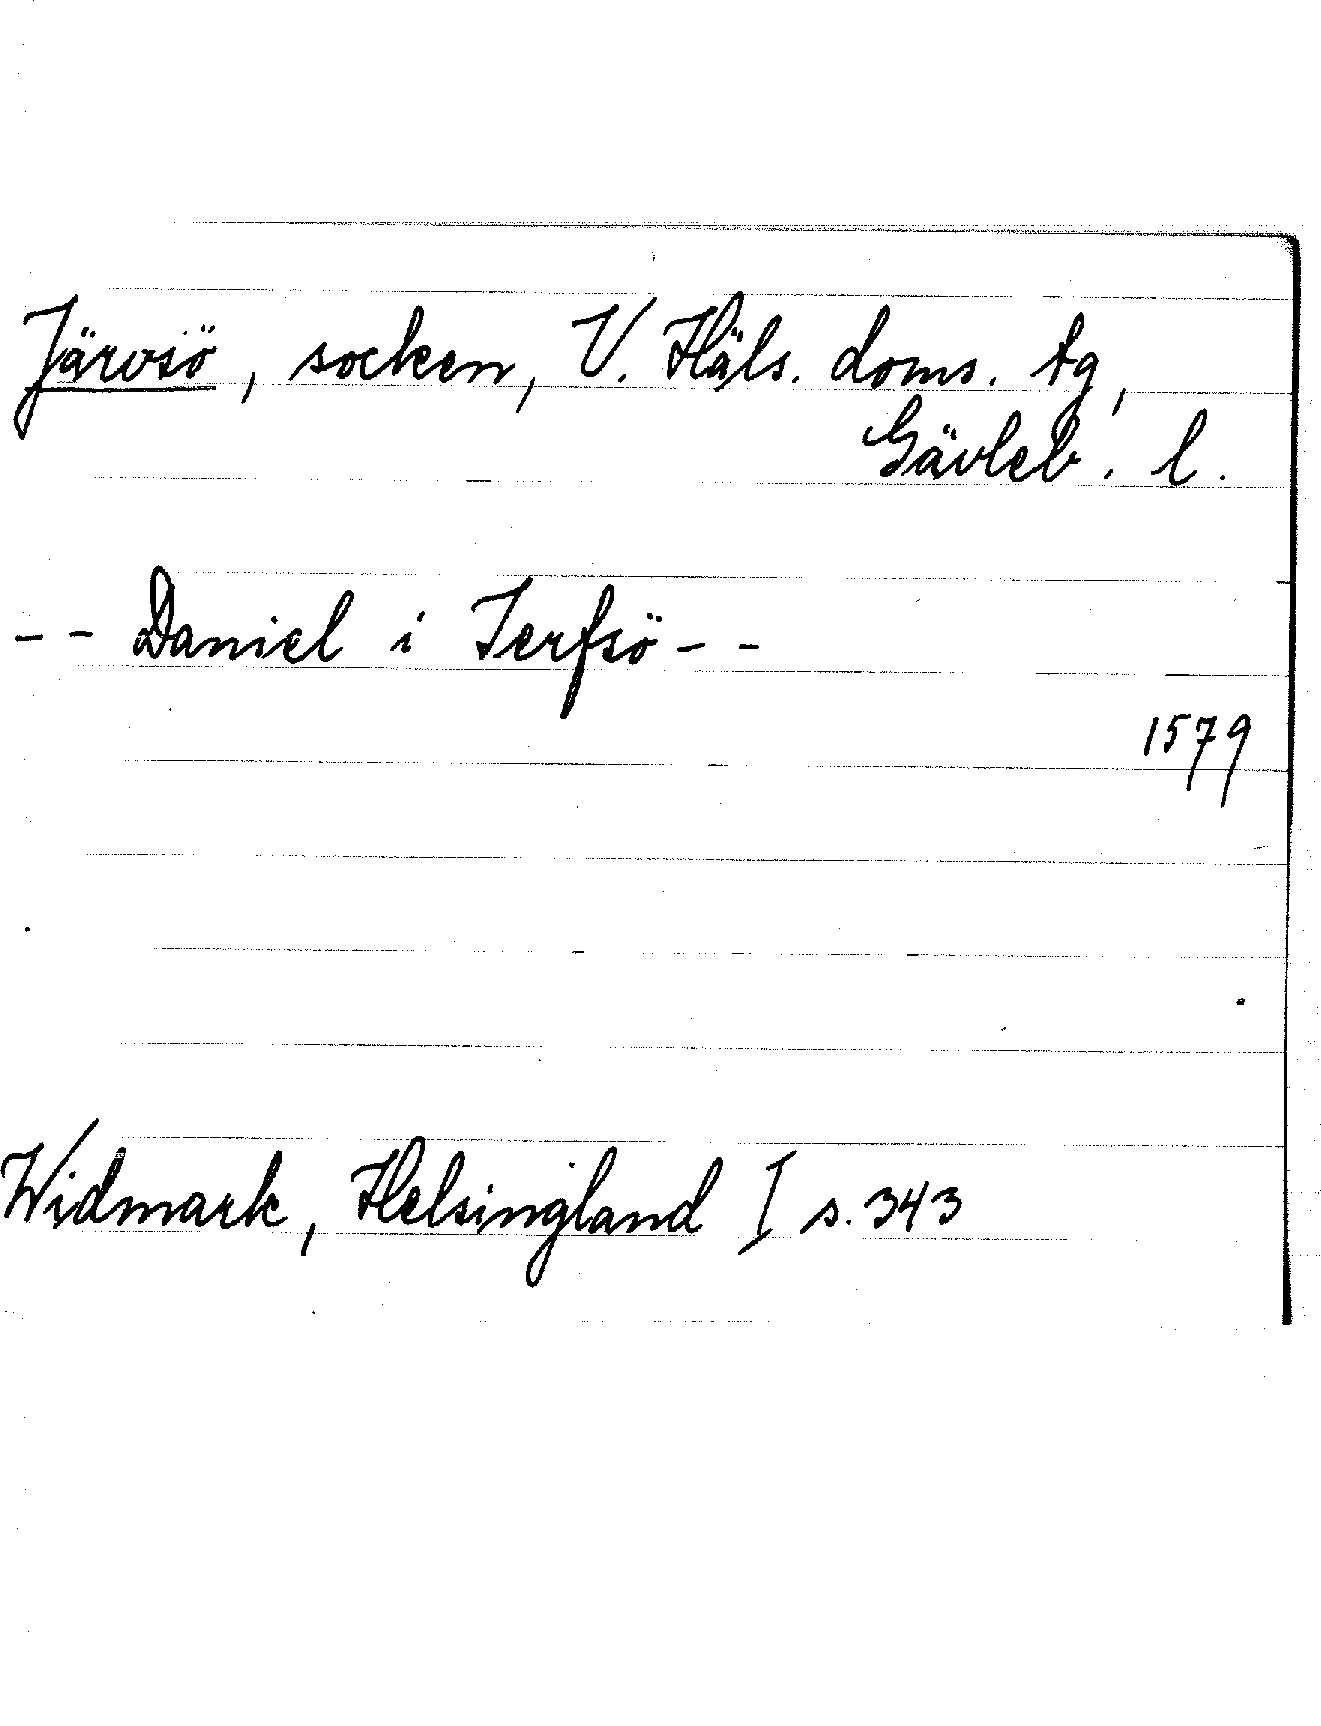 Järvsö, socken, V. Häls. doms. tg,
Gävleb. l.
-- Daniel i Jerfsö --
1579
Widmark, Helsingland I s. 343